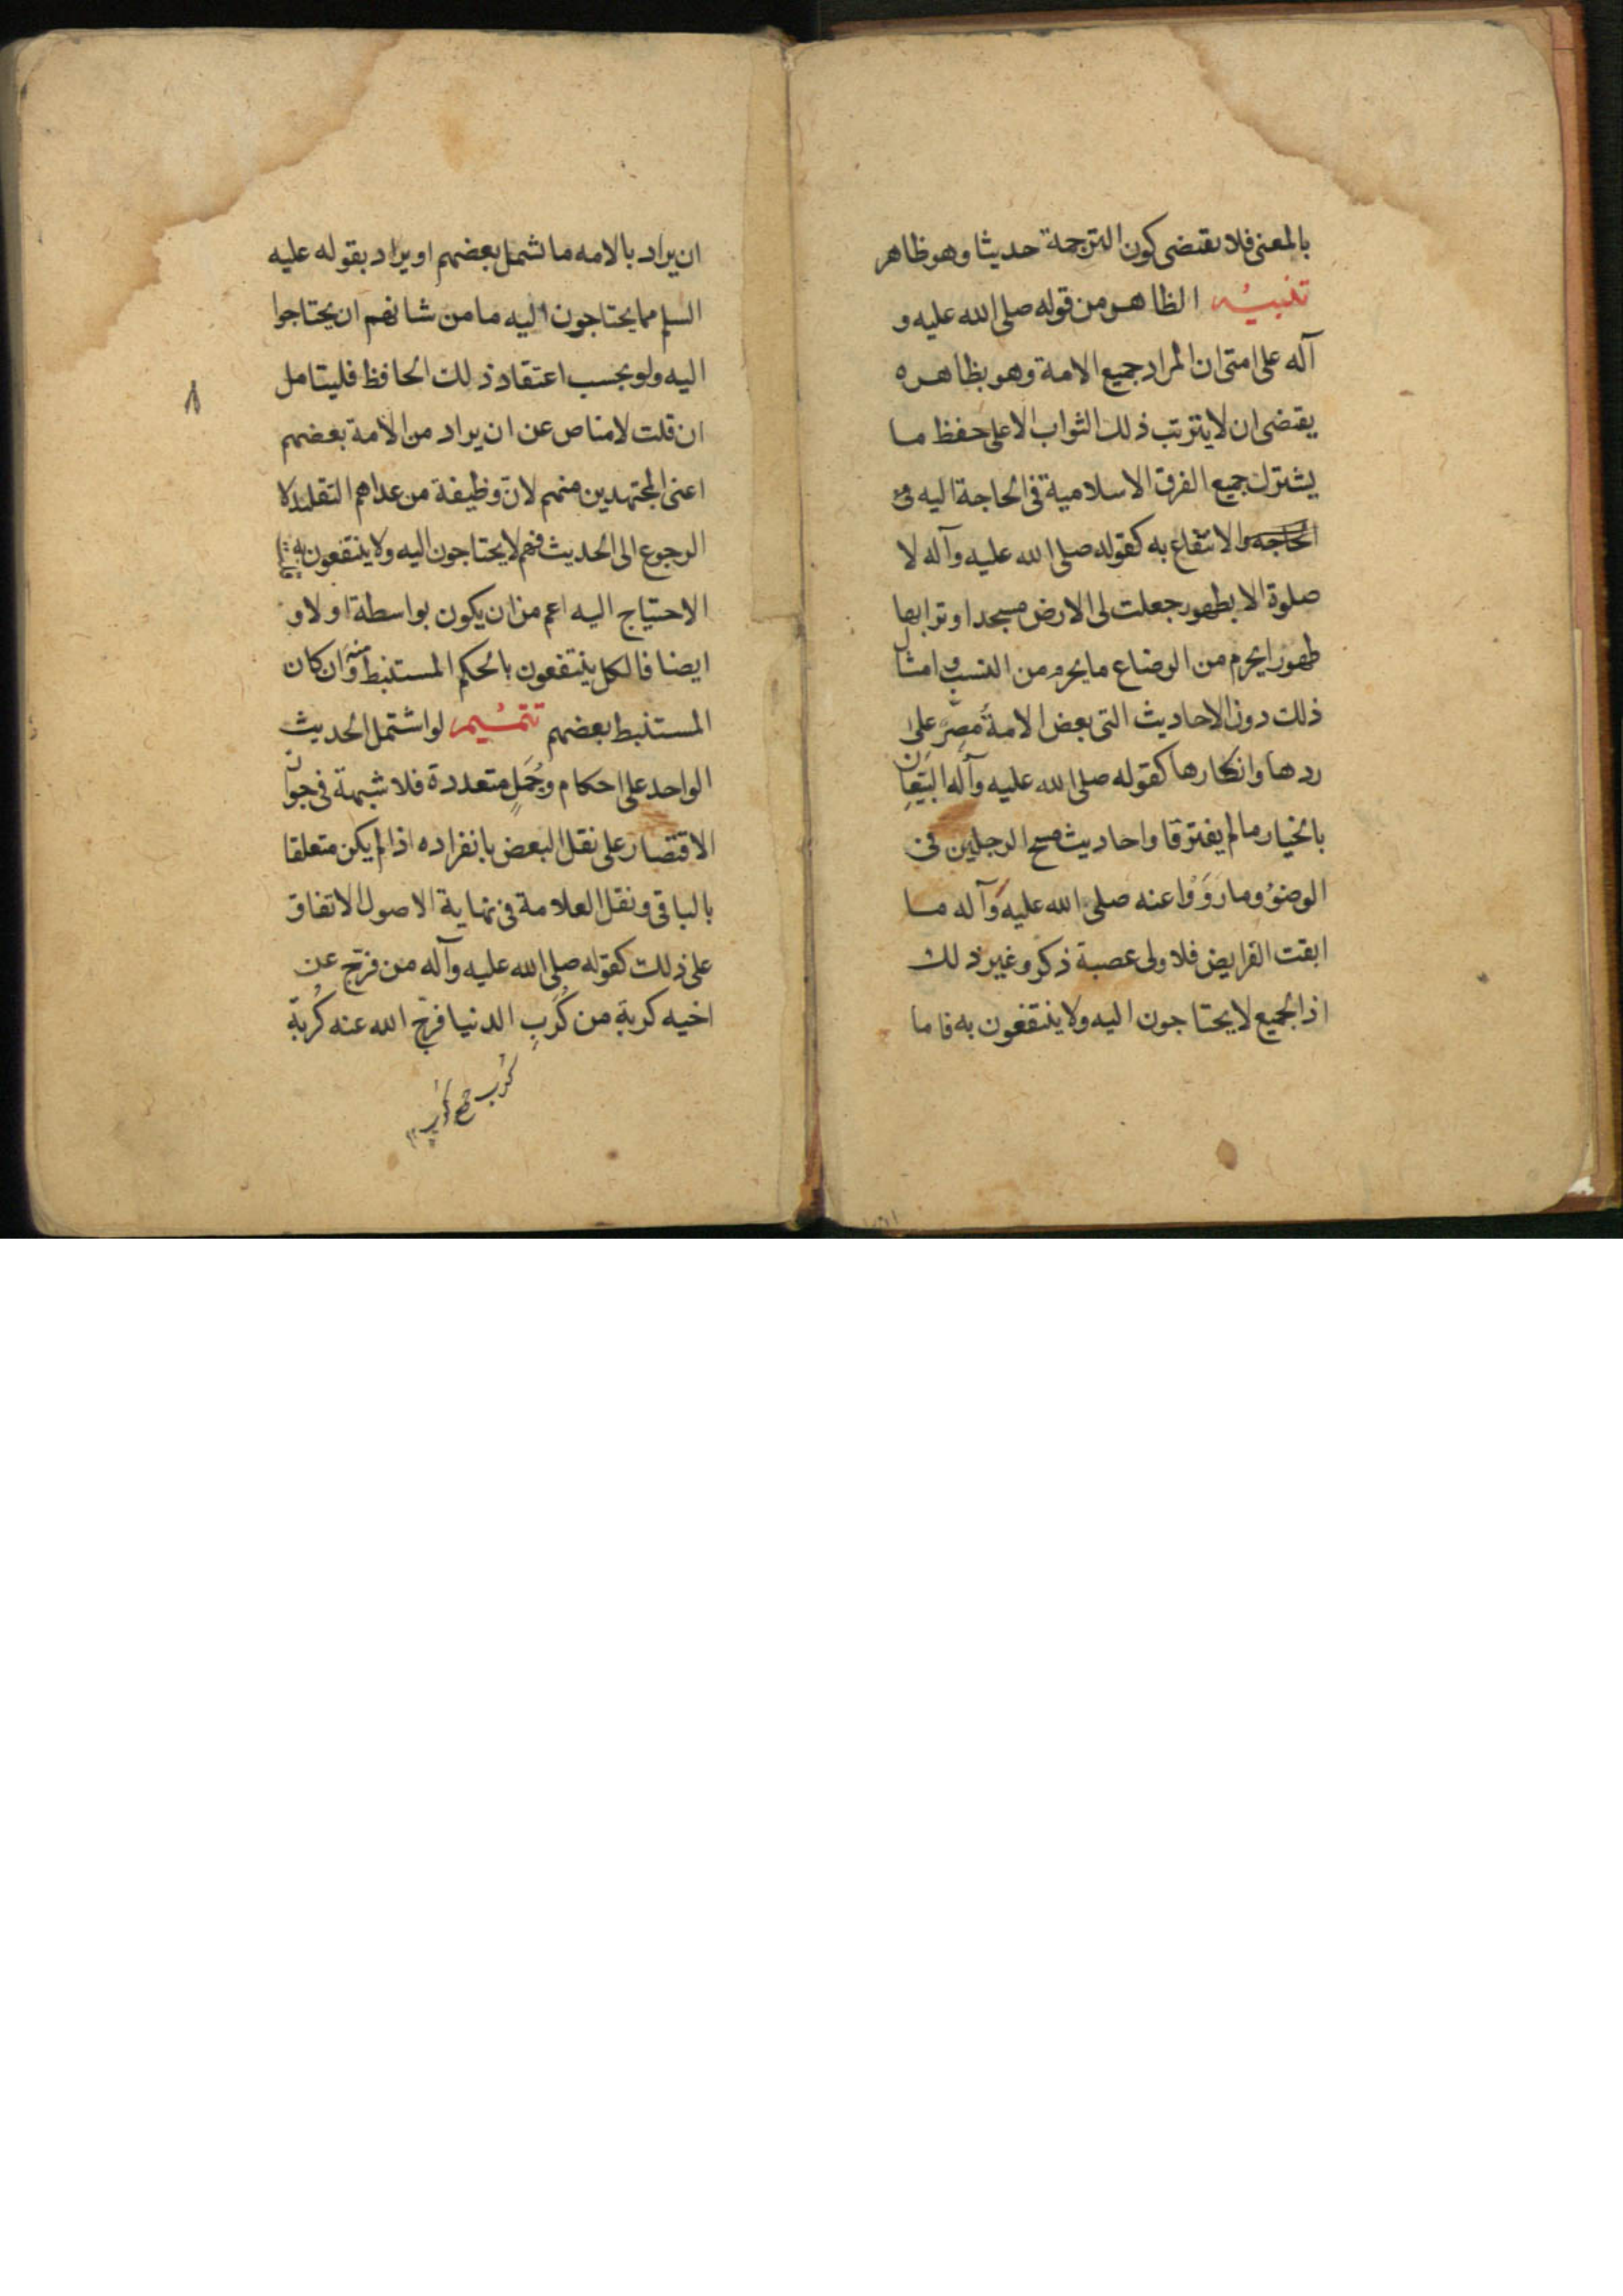 بالمعنى فلا يقتضى كون الترجمة حديثا وهو ظاهر
تنبيه الظاهر من قوله صلى الله عليه و
آله على امتى ان المراد جميع الامة وهو بظاهره
يقتضى ان لا يترتب ذلك الثواب الا على حفظ ما
يشترك جميع الفرق الاسلامية فى الحاجة اليه
الحاجة والانتفاع به كقوله صلى الله عليه وآله لا
صلوة الا بطهور جعلت لى الارض مسجدا وترابها
طهورا يحرم من الرضاع ما يحرم من النسب و امثال
ذلك دون الاحاديث التى بعض الامة مُصِرّ على
ردها وانكارها كقوله صلى الله عليه وآله البَيّعان
بالخيار ما لم يفترقا واحاديث مسح الرجلين فى
الوضوء وما رَوَوْا عنه صلى الله عليه وآله ما
ابقت الفرايض فلاولى عصبة ذكر وغير ذلك
اذ الجميع لا يحتاجون اليه ولا ينتفعون به فاما
ان يراد بالامه ما شمل بعضهم او يراد بقوله عليه
السلم مما يحتاجون اليه ما من شانهم ان يحتاجوا
اليه ولو بحسب اعتقاد ذلك الحافظ فليتامل
٨
ان قلت لا مناص عن ان يراد من الامة بعضهم
اعنى المجتهدين منهم لانّ وظيفة من عداهم التقليد لا
الرجوع الى الحديث فهم لا يحتاجون اليه ولا ينتفعون به
الاحتياج اليه اعم من ان يكون بواسطة او لا و
ايضا فالكل ينتفعون بالحكم المستنبط منه وان كان
المستنبط بعضهم تتميم لو اشتمل الحديث
الواحد على احكام وجُمَلٍ متعددة فلا شبهة فى جواز
الاقتصار على نقل البعض بانفراده اذا لم يكن متعلقا
بالباقى ونقل العلامة فى نهاية الاصول الاتفاق
على ذلك كقوله صلى الله عليه وآله من فرّج عن
اخيه كربة من كُرَبِ الدنيا فرج الله عنه كُربة
كُرَب جمع